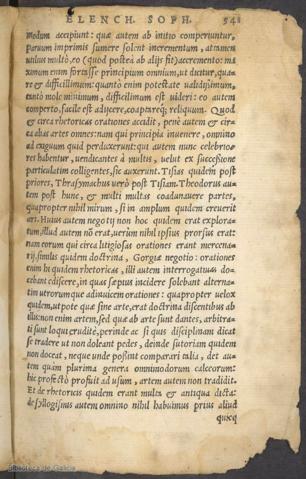 ELENCH. SOPH. 541
modum accipiunt: quæ autem ab initio comperiuntur,
paruum imprimis sumere solent incrementum, attamen
utilius multò, eo (quod postea ab alijs fit) accremento: ma
ximum enim fortasse principium omnium, ut dicitur, qua-
re & difficillimum: quantò enim potestate ualidissimum,
tantò mole minimum, difficillimum est uideri: eo autem
comperto, facile est adijcere, coaptareq; reliquum. Quod
& circa rhetoricas orationes accidit, penè autem & cir-
ca alias artes omnes: nam qui principia inuenere, omnino
ad exiguum quid perduxerunt: qui autem nunc celebrio-
res habentur, uendicantes à multis, uelut ex successione
particulatim colligentes, sic auxerunt. Tisias quidem post
priores, Thrasymachus uerò post Tisiam. Theodorus au-
tem post hunc, & multi multas coadunauere partes,
quapropter nihil mirum, si in amplum quidem creuerit
ars. Huius autem negotij non hoc quidem erat explora-
tum, illud autem nõ erat, uerùm nihil ipsius prorsus erat:
nam eorum qui circa litigiosas orationes erant mercena-
rij, similis quidem doctrina, Gorgiæ negotio: orationes
enim hi quidem rhetoricas, illi autem interrogatiuas do-
cebant ediscere, in quas sæpius incidere solebant alterna-
tim utrorumque adinuicem orationes: quapropter uelox
quidem, ut pote quæ sine arte, erat doctrina discentibus ab
illis: non enim artem, sed quæ ab arte sunt dantes, arbitra-
ti sunt loqui eruditè, perinde ac si quis disciplinam dicat
se tradere ut non doleant pedes, deinde sutoriam quidem
non doceat, neque unde possint comparari talia, det au-
tem quàm plurima genera omnimodorum calceorum:
hic profectò profuit ad usum, artem autem non tradidit.
Et de rhetoricis quidem erant multa & antiqua dicta:
de syllogismus autem omnino nihil habuimus prius aliud
quicq
Biblioteca de Galicia